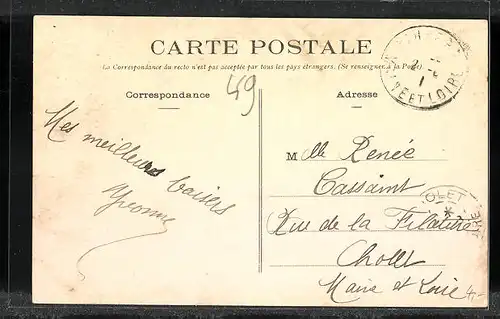 CARTE POSTALE
La Correspondance du recto n'est pas acceptée par tous les pays étrangers. (Se renseigner à la Poste).
Correspondance
49
Adresse
ET LOIRE
Mes meilleurs baisers
Yvonne
Mlle Renée
Cassaint
Rue de la Filature
Cholet
Maine et Loire
OLET
4,-